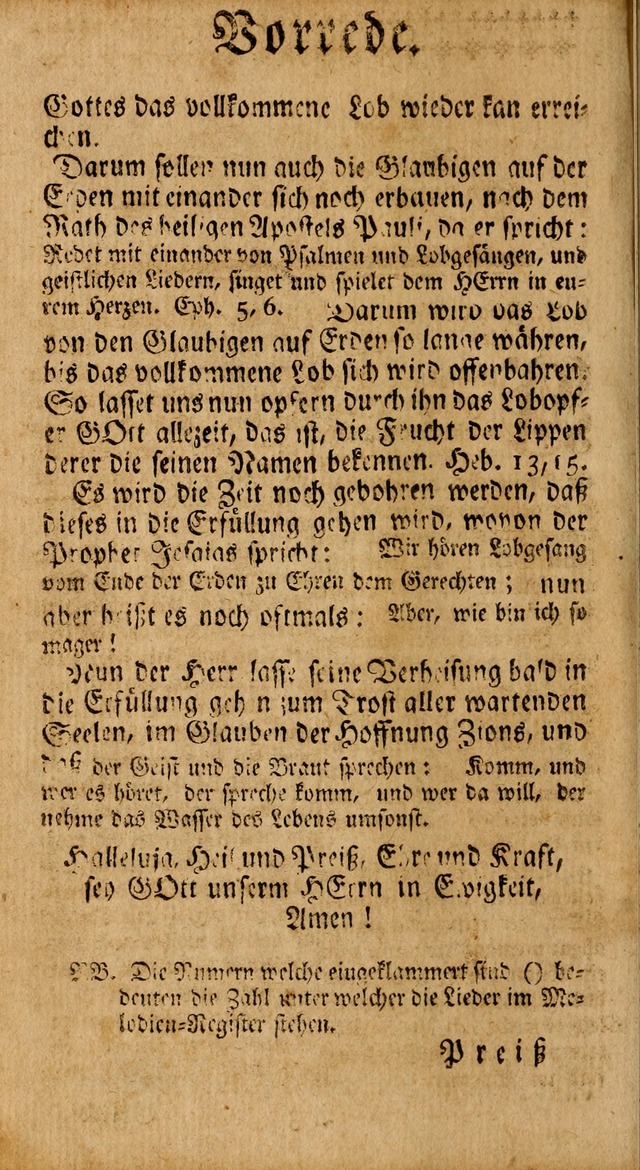 Vorrede.
Gottes das vollkommene Lob wieder kan errei-
chen.
Darum sollen nun auch die Glaubigen auf der
Erden mit einander sich noch erbauen, nach dem
Rath des heiligen Apostels Pauli, da er spricht:
Redet mit einander von Psalmen und Lobgesängen, und
geistlichen Liedern, singet und spielet dem HErrn in eu-
rem Herzen. Eph. 5, 6. Darum wird das Lob
von den Glaubigen auf Erden so lange währen,
bis das vollkommene Lob sich wird offenbahren.
So lasset uns nun opfern durch ihn das Lobopf-
er GOtt allezeit, das ist, die Frucht der Lippen
derer die seinen Namen bekennen. Heb. 13, 15.
Es wird die Zeit noch gebohren werden, daß
dieses in die Erfüllung gehen wird, wovon der
Prophet Jesaias spricht: Wir hören Lobgesang
vom Ende der Erden zu Ehren dem Gerechten; nun
aber heißt es noch oftmals: Aber, wie bin ich so
mager!
Nun der Herr lasse seine Verheisung bald in
die Erfüllung gehen zum Trost aller wartenden
Seelen, im Glauben der Hoffnung Zions, und
daß der Geist und die Braut sprechen: Komm, und
wer es höret, der spreche komm, und wer da will, der
nehme das Wasser des Lebens umsonst.
Halleluja, Heil und Preiß, Ehre und Kraft,
sey GOtt unserm HErrn in Ewigkeit,
Amen!
NB. Die Numern welche eingeklammert sind () be-
deuten die Zahl unter welcher die Lieder im Me-
lodien-Register stehen.
Preiß